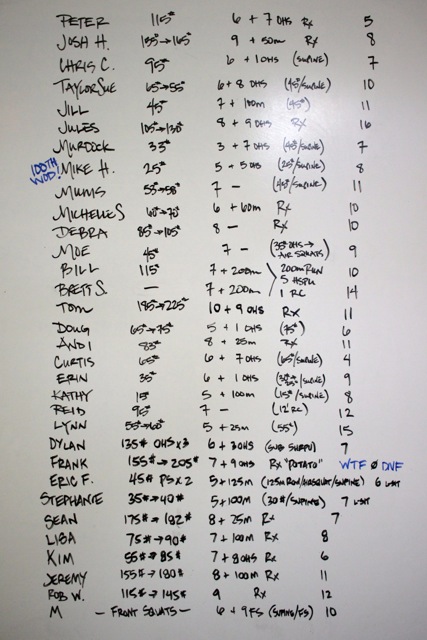 PETER 115# 6 + 7 OHS Rx 5
JOSH H. 155#→165# 9 + 50m Rx 8
CHRIS C. 95# 6 + 1 OHS (SUPINE) 7
TAYLORSUE 45#→55# 6+8 OHS (45#/SUPINE) 10
JILL 45# 7 + 100m (45#) 11
JULES 105#→130# 8 + 9 OHS Rx 16
MURDOCK 33# 3 + 7 OHS (45#/SUPINE) 7
100TH WOD! MIKE H. 25# 5 + 5 OHS (25#/SUPINE) 8
MUMS 55#→58# 7 — (45#/SUPINE) 11
MICHELLE S 60#→70# 6 + 60m Rx 10
DEBRA 85#→105# 8 — Rx 10
MOE 45# 7 — (35# OHS → AIR SQUATS) 9
BILL 115# 7 + 200m 200m RUN 10
BRETT S. — 7 + 200m 5 HSPU 14
1 RC
TOM 185#→225# 10 + 9 OHS Rx 11
DOUG 65#→75# 5 + 1 OHS (75#) 6
ANDI 83# 8 + 25m Rx 11
CURTIS 65# 6 + 7 OHS (65#/SUPINE) 4
ERIN 35# 6 + 1 OHS 9
KATHY 15# 5 + 100m (15#/SUPINE) 8
REID 95# 7 — (12' RC) 12
LYNN 55#→60# 5 + 25m (55#) 15
DYLAN 135# OHS x3 6 + 3 OHS (SUB SHRPU) 7
FRANK 155#→205# 7 + 9 OHS Rx "POTATO" WTF Ø DNF
ERIC F. 45# PS x 2 5+125m (125m ROW/AIRSQUAT/SUPINE) 6 LSIT
STEPHANIE 35#→40# 5+100M (30#/SUPINE) 7 LSIT
SEAN 175#→182# 8 + 25m Rx 7
LISA 75#→90# 7 + 100m Rx 8
KIM 55#→85# 7 + 8 OHS Rx 6
JEREMY 155#→180# 8 + 100m Rx 11
ROB W. 115#→145# 9 Rx 12
M — FRONT SQUATS — 6 + 9 FS (SUPINE/FS) 10